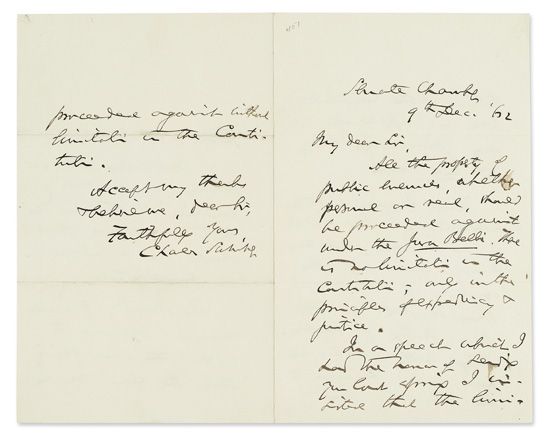 Senate Chamber
9th Dec. '62
My dear Sir,
All the property of
public enemies, whether
personal or real, should
be proceeded against
under the Jura Belli. There
is no limitation in the
Constitution; only in the
principles of expediency &
justice.
In a speech which I
had the honor of sending
you last spring I in-
sisted that the limi-
proceeded against without
limitation in the Consti-
tution.
Accept my thanks
& believe me, dear Sir,
Faithfully Yours,
Charles Sumner